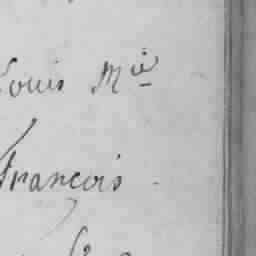 Louis M^ie
François